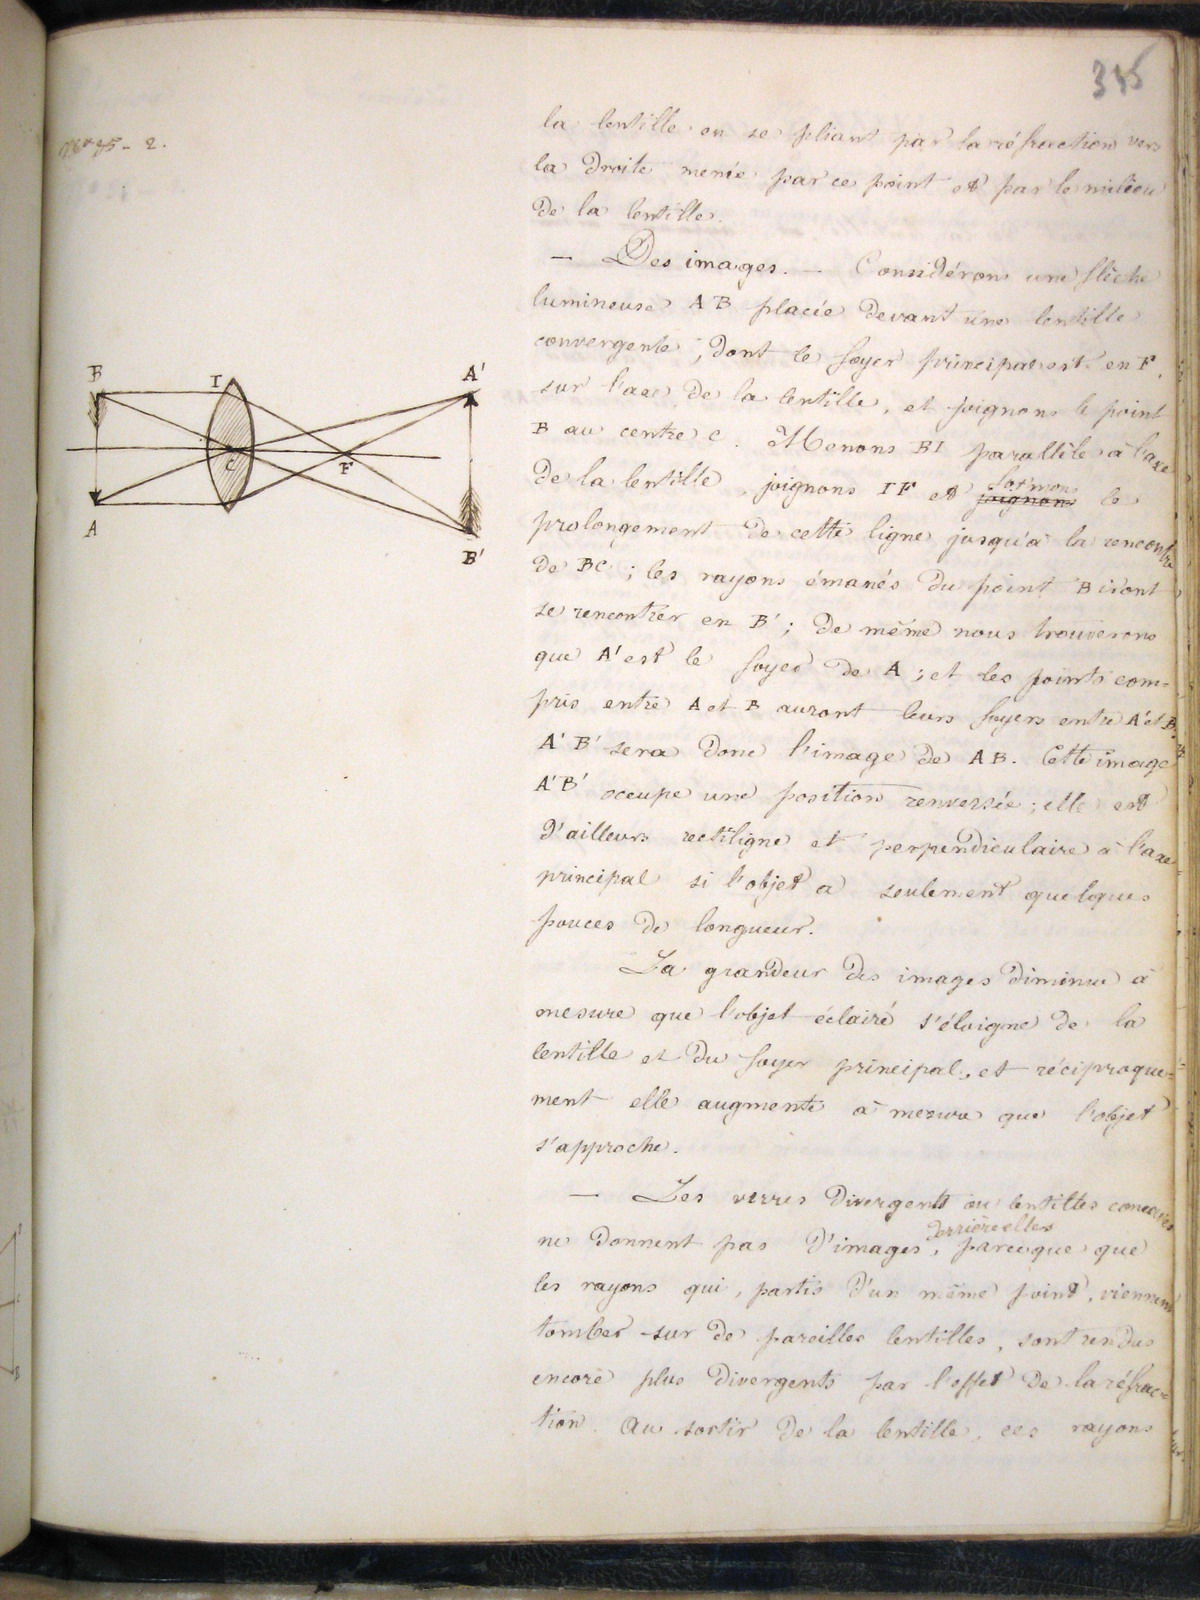 345
- 2.
la lentille en se pliant par la réfraction vers
la droite menée par ce point et par le milieu
de la lentille.
— Des images. — Considérons une flèche
lumineuse AB placée devant une lentille
convergente, dont le foyer principal est en F,
sur l'axe de la lentille, et joignons le point
B au centre C. Menons BI parallèle à l'axe
de la lentille, joignons IF et joignons le
prolongement de cette ligne jusqu'à la rencontre
de BC ; les rayons émanés du point B iront
se rencontrer en B' ; de même nous trouverons
que A' est le foyer de A ; et les points com-
pris entre A et B auront leurs foyers entre A' et B'.
A'B' sera donc l'image de AB. Cette image
A'B' occupe une position renversée ; elle est
d'ailleurs rectiligne et perpendiculaire à l'axe
principal si l'objet a seulement quelques
pouces de longueur.
La grandeur des images diminue à
mesure que l'objet éclairé s'éloigne de la
lentille et du foyer principal, et réciproque-
ment elle augmente à mesure que l'objet
s'approche.
— Les verres divergents ou lentilles concaves
derrière elles
ne donnent pas d'images, parceque que
les rayons qui, partis d'un même point, viennent
tomber sur de pareilles lentilles, sont rendus
encore plus divergents par l'effet de la réfrac-
tion. Au sortir de la lentille, ces rayons
B
I
A'
C
F
A
B'